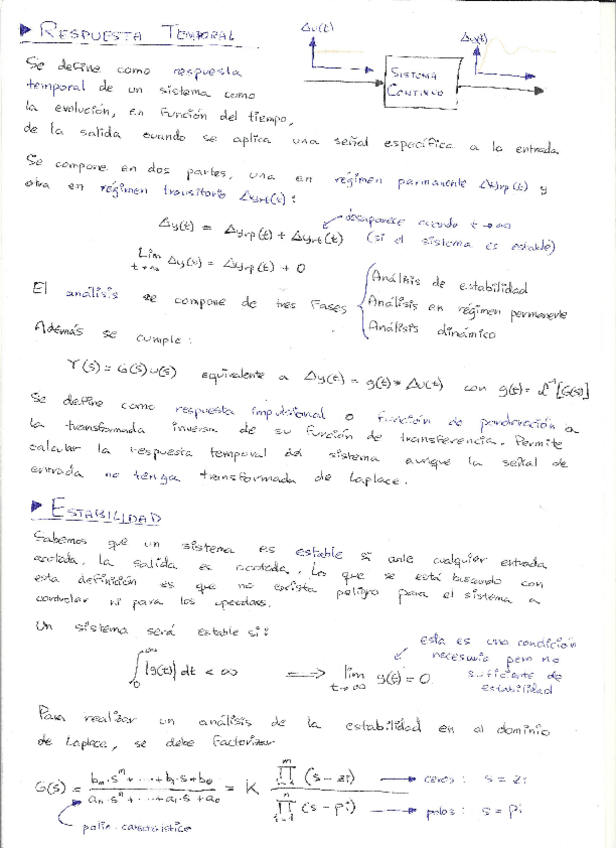 ▶ RESPUESTA TEMPORAL
Δu(t)
Δy(t)
SISTEMA
CONTINUO
Se define como respuesta
temporal de un sistema como
la evolución, en función del tiempo,
de la salida cuando se aplica una señal específica a la entrada
Se compone en dos partes, una en régimen permanente Δyrp(t) y
otra en régimen transitorio Δyrt(t):
Δy(t) = Δyrp(t) + Δyrt(t)
desaparece cuando t→∞
(si el sistema es estable)
Lim t→∞ Δy(t) = Δyrp(t) + 0
El análisis se compone de tres fases
Análisis de estabilidad
Análisis en régimen permanente
Análisis dinámico
Además se cumple:
Y(s) = G(s)U(s) equivalente a Δy(t) = g(t)* Δu(t) con g(t) = L⁻¹[G(s)]
Se define como respuesta impulsional o función de ponderación a
la transformada inversa de su función de transferencia. Permite
calcular la respuesta temporal del sistema aunque la señal de
entrada no tenga transformada de Laplace.
▶ ESTABILIDAD
Sabemos que un sistema es estable si ante cualquier entrada
acotada, la salida es acotada. Lo que se está buscando con
esta definición es que no exista peligro para el sistema a
controlar ni para los operadores.
Un sistema será estable si:
∫₀^∞ |g(t)| dt < ∞ ⟹ lim t→∞ g(t) = 0
esta es una condición
necesaria pero no
suficiente de
estabilidad
Para realizar un análisis de la estabilidad en el dominio
de Laplace, se debe factorizar
G(s) = (bm·sᵐ + ... + b1·s + b0) / (an·sⁿ + ... + a1·s + a0) = K ∏ᵢ₌₁ᵐ (s - zi) / ∏ᵢ₌₁ⁿ (s - pi)
→ ceros: s = zi
→ polos: s = pi
polin. característico